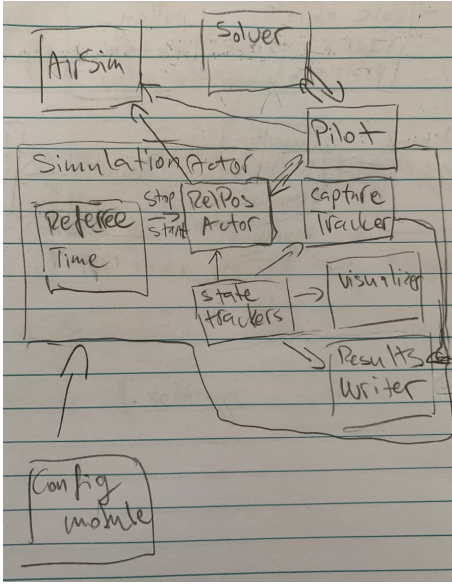 AirSim
Solver
Pilot
Simulation Actor
Referee
Time
Stop
Start
RelPos
Actor
Capture
Tracker
state
trackers
visualizer
Results
Writer
Config
module